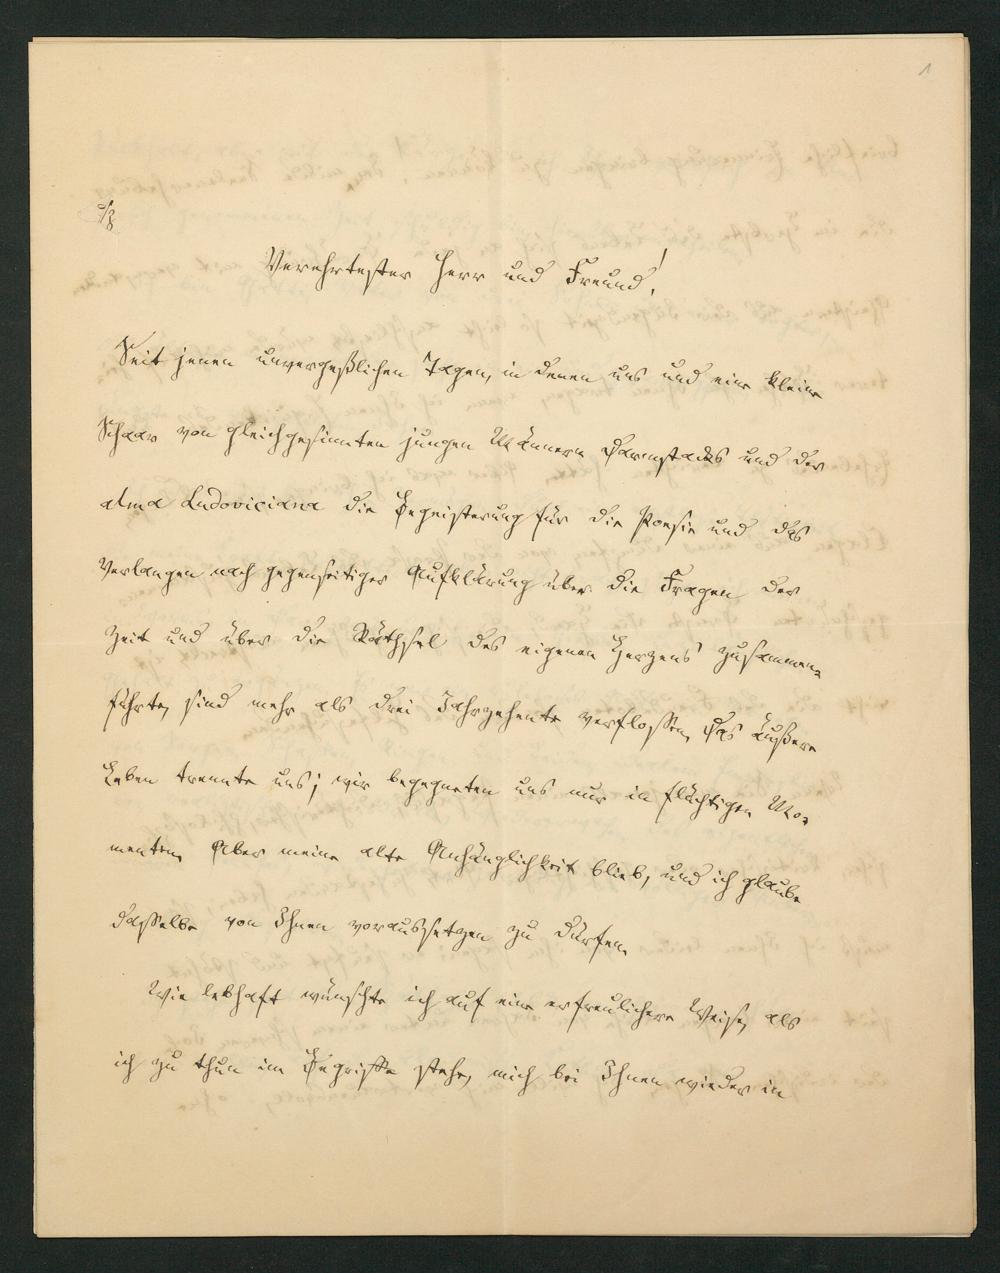 1
Verehrtester Herr und Freund!
Seit jenen unvergeßlichen Tagen, in denen uns und eine kleine
Schaar von gleichgesinnten jungen Männern Darmstadts und der
alma Ludoviciana die Begeisterung für die Poesie und das
Verlangen nach gegenseitiger Aufklärung über die Fragen der
Zeit und über die Räthsel des eigenen Herzens zusammen-
führte, sind mehr als drei Jahrzehente verflossen. Das äußere
Leben trennte uns; wir begegneten uns nur in flüchtigen Mo-
menten. Aber meine alte Anhänglichkeit blieb, und ich glaube
dasselbe von Ihnen voraussetzen zu dürfen.
Wie lebhaft wünschte ich auf eine erfreulichere Weise, als
ich zu thun im Begriffe stehe, mich bei Ihnen wieder in